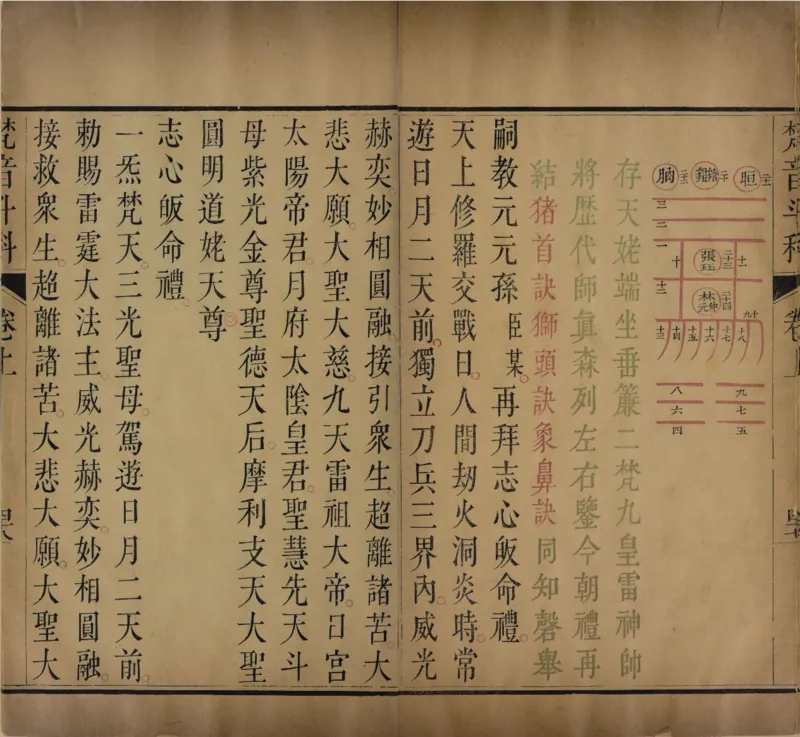 梵音斗科
卷上
𦙶
二
翺
䎘
二十
晅
三
三
二
一
十
十二
十一
張珏
二十三
林元
仲
二十四
十三
十四
十五
十六
十七
十八
十九
八
六
四
九
七
五
存天姥端坐垂簾二梵九皇雷神帥
將歷代師眞森列左右鑒今朝禮再
結猪首訣獅頭訣象鼻訣同知磬舉
嗣教元元孫臣某再拜志心皈命禮
天上修羅交戰日人間劫火洞炎時常
遊日月二天前獨立刀兵三界內威光
赫奕妙相圓融接引衆生超離諸苦大
悲大願大聖大慈九天雷祖大帝日宮
太陽帝君月府太陰皇君聖慧先天斗
母紫光金尊聖德天后摩利支天大聖
圓明道姥天尊
志心皈命禮
一炁梵天三光聖母駕遊日月二天前
勅賜雷霆大法主威光赫奕妙相圓融
接救衆生超離諸苦大悲大願大聖大
梵音斗科
卷上